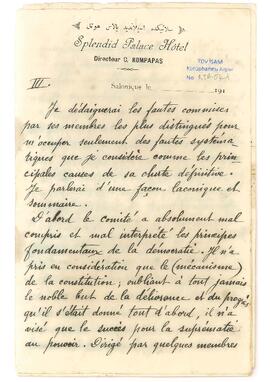 سلانیکده اسپلاندید پالاس هوتل
Splendid Palace Hôtel
Directeur C. KOMPAPAS
TDV İSAM
Kütüphanesi Arşivi
No
Salonique, le 191
III.
Je dédaignerai les fautes commises
par ses membres les plus distingués pour
m'occuper seulement des fautes systéma
tiques que je considère comme les prin
cipales causes de sa chute définitive.
Je parlerai d'une façon laconique et
sommaire.
D'abord le comité a absolument mal
compris et mal interprété les principes
fondamentaux de la démocratie. Il n'a
pris en considération que le (mécanisme)
de la constitution; oubliant à tout jamais
le noble but de la délivrance et du progrès
qu'il s'était donné tout d'abord, il n'a
visé que le succès pour la suprématie
au pouvoir. Dirigé par quelques membres